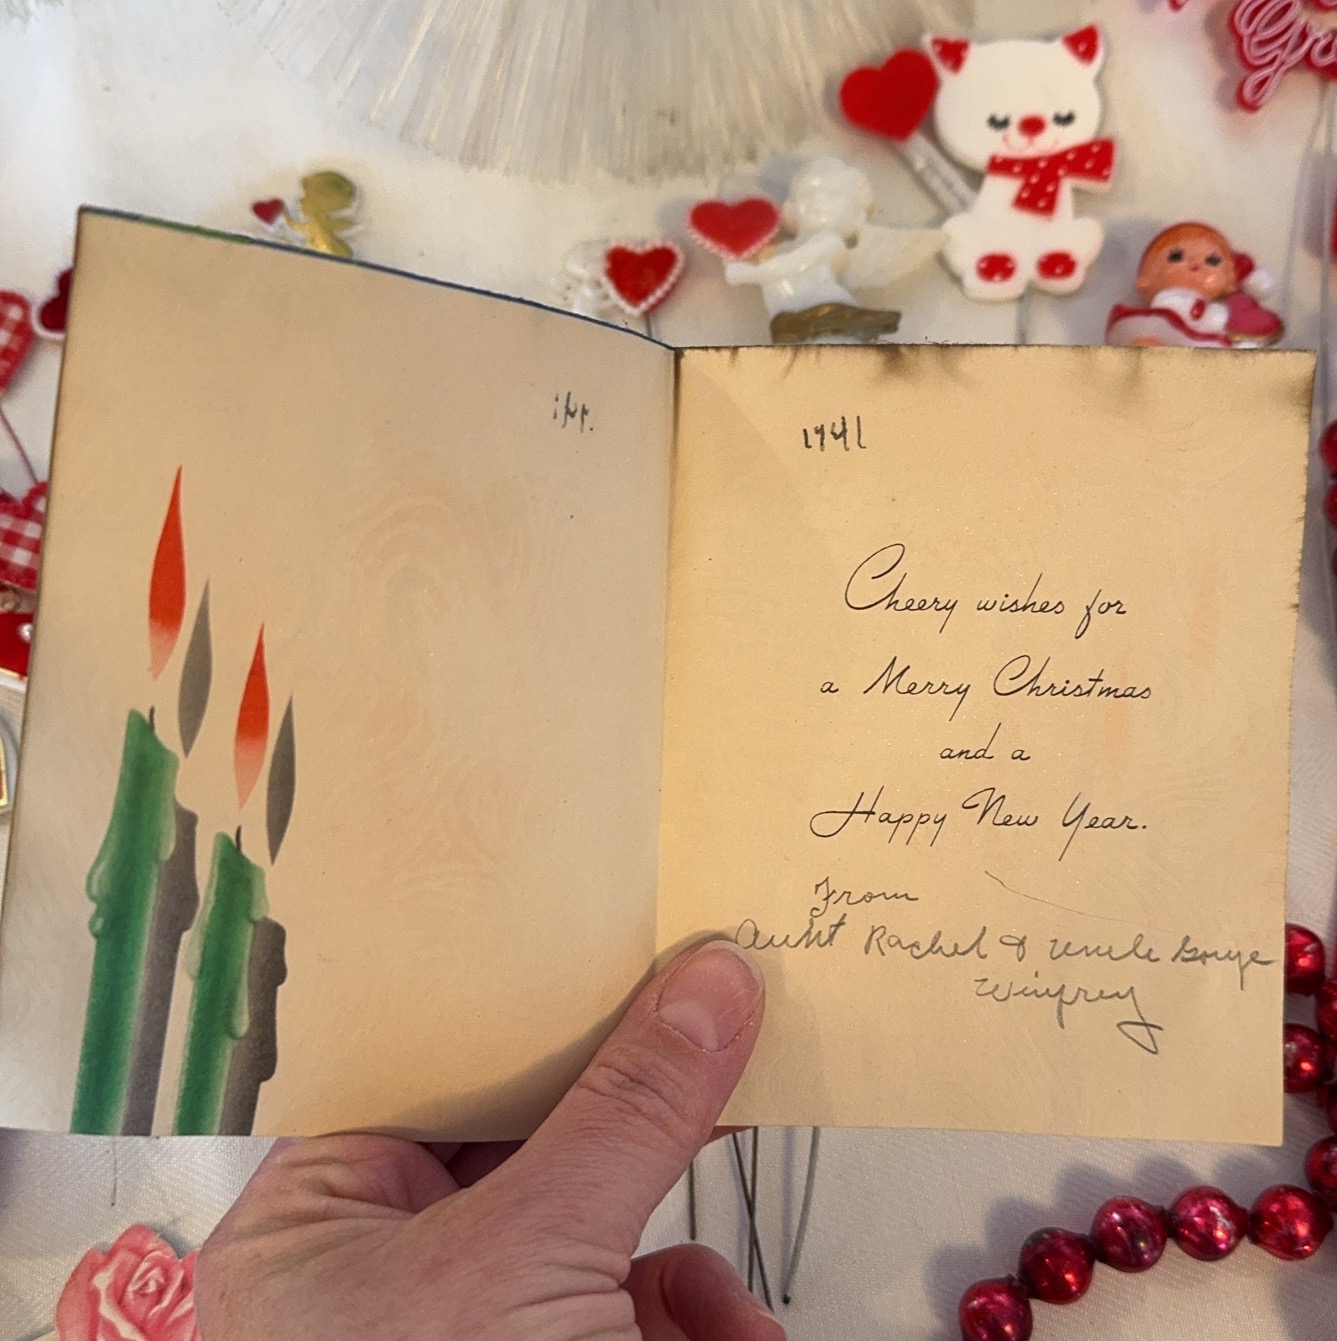 1941
Cheery wishes for
a Merry Christmas
and a
Happy New Year.
From
Aunt Rachel & Uncle George
Winfrey